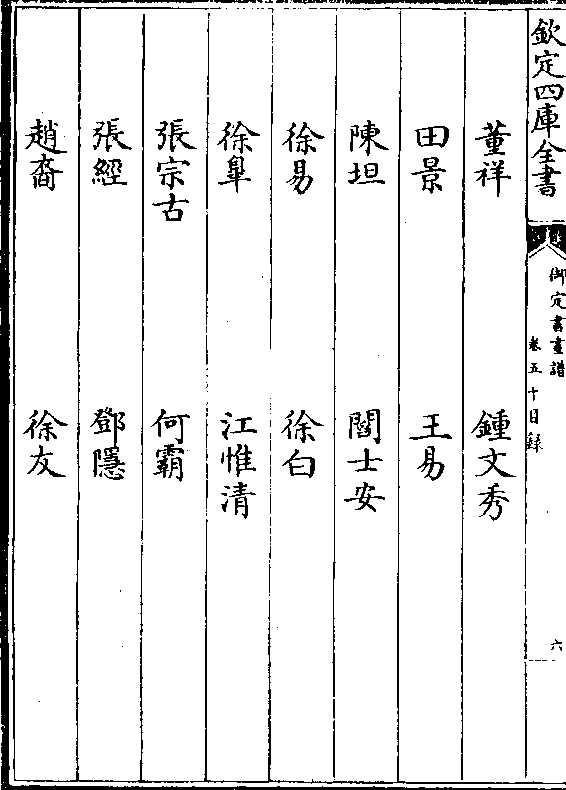 欽定四庫全書
御定書畫譜
卷五十目録
六
董祥 鍾文秀
田景 王易
陳坦 閻士安
徐易 徐白
徐臯 江惟清
張宗古 何霸
張經 鄧隱
趙裔 徐友